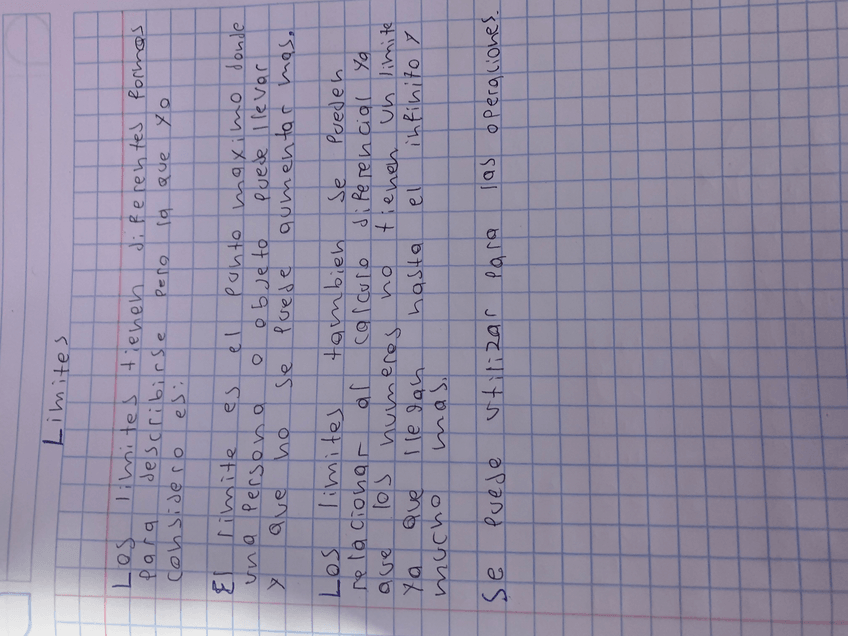 Limites
Los limites tienen diferentes formas
para describirse pero la que yo
considero es:
El limite es el punto maximo donde
una persona o objeto puede llevar
y que no se puede aumentar mas.
Los limites tambien se pueden
relacionar al calculo diferencial ya
que los numeros no tienen un limite
ya que llegan hasta el infinito y
mucho mas.
Se puede utilizar para las operaciones.